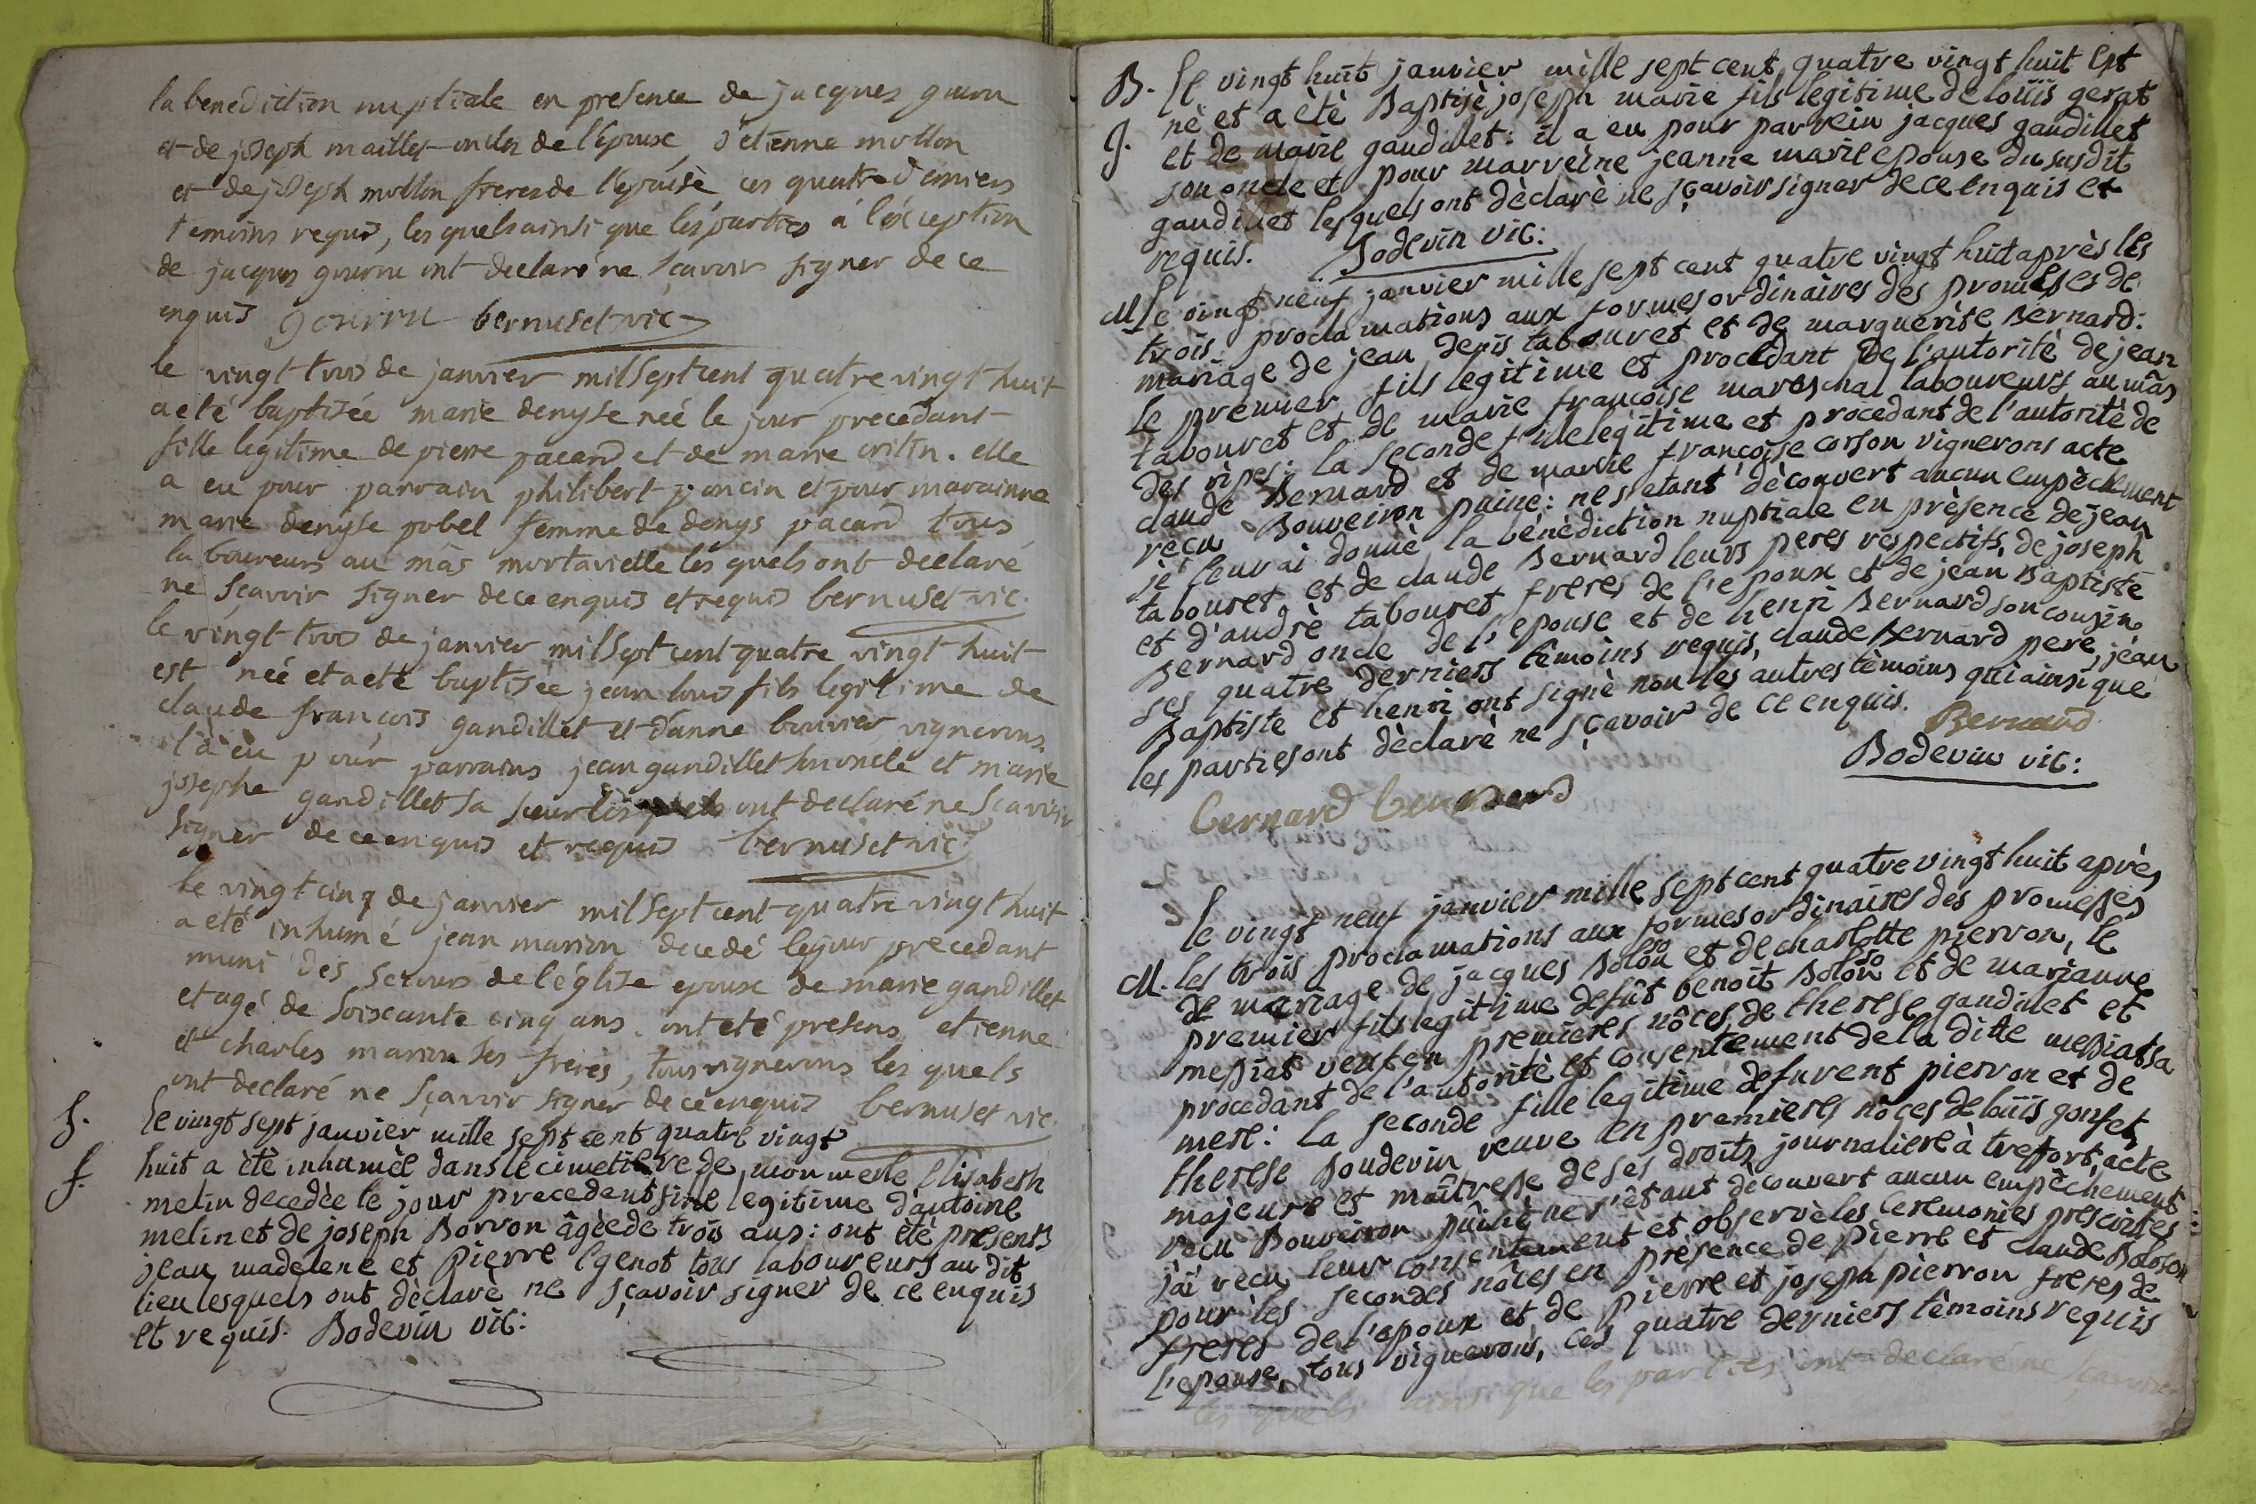 la benediction nuptiale en presence de jacques gourru
et de joseph maillet oncles de l'epouse, d'etienne mollon
et de joseph mollon freres de l'epouse ces quatre derniers
temoins requis, lesquels ainsi que les parties à l'exception
de jacques gourru ont declaré ne sçavoir signer de ce
enquis Gourru bernuset vic
le vingt trois de janvier mil sept cent quatre vingt huit
a eté baptisée marie denyse neé le jour precedant
fille legitime de pierre pacard et de marie critin. elle
a eu pour parrain philibert poncin et pour marainne
marie denyse pobel femme de denys pacard tous
laboureurs au mâs mortarielle lesquels ont declaré
ne sçavoir signer de ce enquis et requis bernuset vic.
le vingt trois de janvier mil sept cent quatre vingt huit
est neé et a eté baptisée jean louis fils legitime de
claude françois gandillet et d'anne bouvier vignerons.
il à eu pour parrains jean gandillet son oncle et marie
josephe gandillet sa sœur lesquels ont declaré ne scavoir
signer de ce enquis et requis bernuset vic
le vingt cinq de janvier mil sept cent quatre vingt huit
a eté inhumé jean marion decedé le jour precedant
muni des secours de l'église epoux de marie gandillet
et agé de soixante cinq ans. ont eté presens etienne
et charles marion ses freres, tous vignerons les quels
ont declaré ne sçavoir signer de ce enquis bernuset vic.
S. le vingt sept janvier mille sept cent quatre vingt
f. huit a ètè inhumèe dans le cimetiere de monmerle Elisabeth
melin decedèe le jour precedent fille legitime d'antoine
melin et de joseph Borron âgèe de trois ans: ont ètè presents
jean madelene et pierre Egenot tous laboureurs au dit
lieu lesquels ont dèclarè ne sçavoir signer de ce enquis
et requis. Bodevin vic:
B. Le vingt huit janvier mille sept cent quatre vingt huit est
g. nè et a ètè Baptisè joseph marie fils legitime de loüis gerat
et de marie gaudillet: il a eu pour parrein jacques gaudillet
son oncle et pour marreine jeanne marie epouse du susdit
gaudillet lesquels ont dèclarè ne sçavoir signer de ce enquis et
requis. Bodevin vic:
M. Le vingt neuf janvier mille sept cent quatre vingt huit après les
trois proclamations aux formes ordinaires des promesses de
mariage de jean denis tabouret et de marguerite Bernard:
le premier fils legitime et procedant de l'autoritè de jean
tabouret et de marie françoise mareschal laboureurs au mâs
des ripes: la seconde fille legitime et procedant de l'autoritè de
claude Bernard et de marie françoise corson vignerons acte
reçu Bouveiron puinè: ne s'etant dècouvert aucun empèchement
je leur ai donnè la bènèdiction nuptiale en prèsence de jean
tabouret et de claude Bernard leurs peres respectifs, de joseph
et d'andrè tabouret freres de l'epoux et de jean Baptiste
Bernard oncle de l'epouse et de henri Bernard son cousin
ses quatre derniers tèmoins requis, claude Bernard pere, jean
Baptiste et henri ont signè non les autres tèmoins qui ainsi que
les parties ont dèclarè ne sçavoir de ce enquis.
Bernard
Bodevin vic:
bernard bernard
Le vingt neuf janvier mille sept cent quatre vingt huit après
M. les trois proclamations aux formes ordinaires des promesses
de mariage de jacques Boloson et de charlotte pierron, le
premier fils legitime de fût benoît Boloson et de marianne
messiat veuf en premieres nôces de therese gaudillet et
procedant de l'autoritè et consentement de la ditte messiat sa
mere: la seconde fille legitime de furent pierron et de
therese Boudevin veuve en premieres nôces de loüis gonfet
majeure et maîtresse de ses droits journaliere à treffort, acte
reçu Bouveiron puînè ne s'ètant dècouvert aucun empêchement
j'ai reçu leur consentement et observè les ceremonies prescrites
pour les secondes nôces en prèsence de pierre et claude Boloson
freres de l'epoux et de pierre et joseph pierron freres de
l'epouse, tous vignerons, ces quatre derniers tèmoins requis
les quels ainsi que les parties ont declaré ne sçavoir